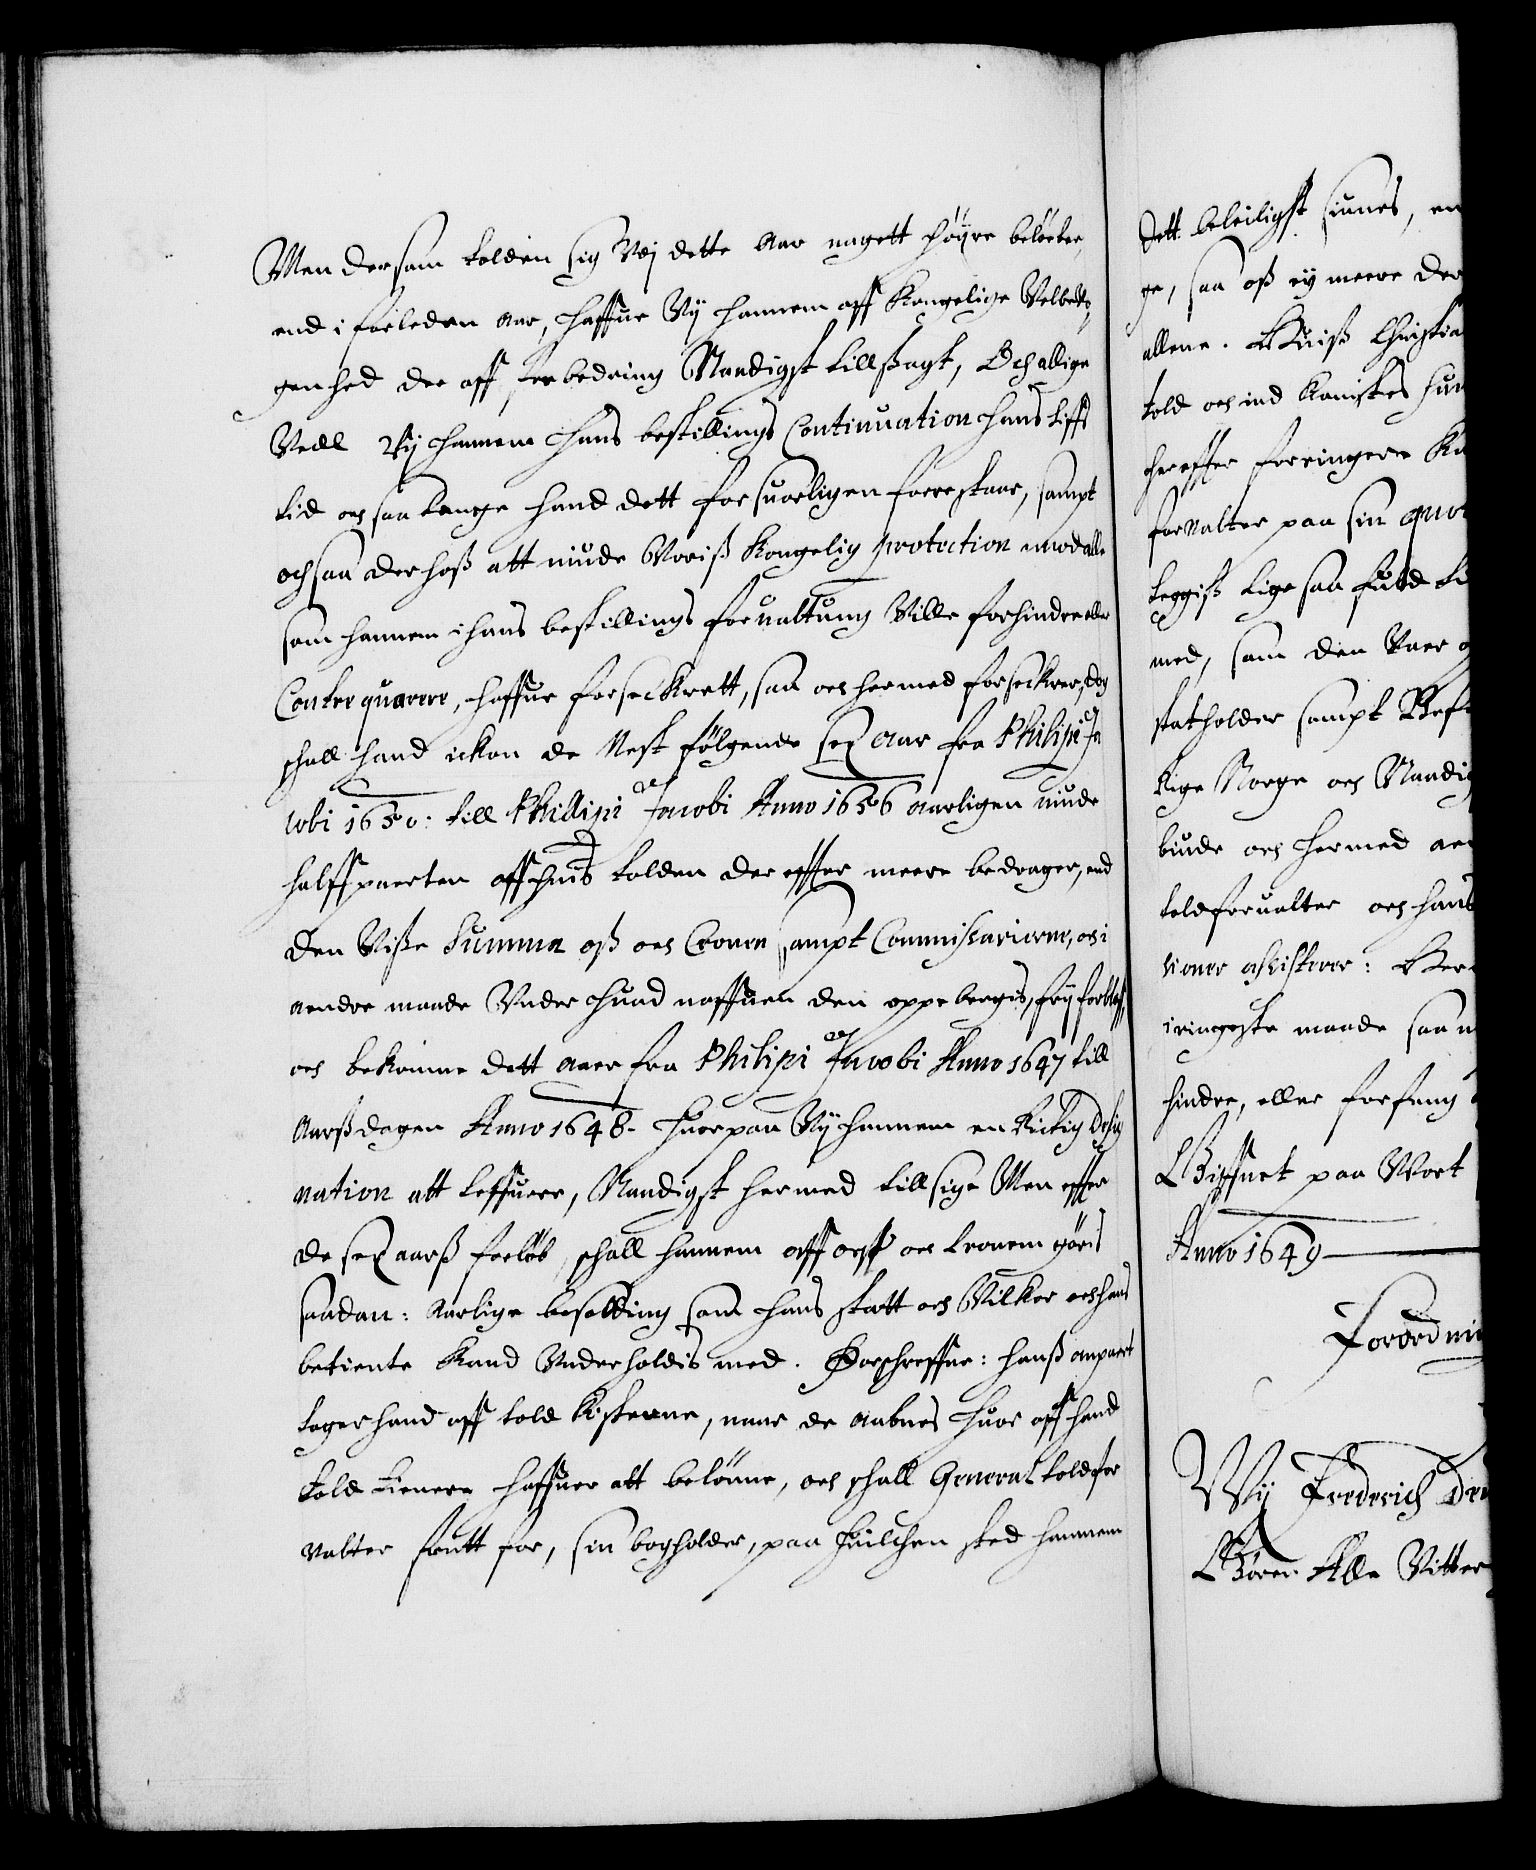 Men dersom tolden sig Udj dette Aar nagett höyre belöber,
end i forleden aar, haffue Vy hannem aff Kongelige Velbeto,
genhed der aff forbedring Naadigst tillsagt, Och allige
Vell Vy hannem hans bestillings Continuation hans Liffs
tid och saa lenge hand dett forsuarligen forrestaar, sampt
ochsaa der hoß att niude Voriß Kongelig protection imod alle
som hannem i hans bestillings foruoltung Ville forhindre eller
Conterquarere, haffue forseckrett, saa och hermed forseckrer, dog
schall hand ickon de Nest fölgende sex aar fra Philipi Ja
cobi 1650: till Philipi Jacobi Anno 1656 aarligen niude
halffparten aff huis tolden der effter meere bedrager, end
den Visse Summa oß och Cronen sampt Commissarierne, och i
andre maade Under huad naffuen den oppebergis, fry forblef,
och bekomme dett aar fra Philipi Jacobi Anno 1647 till
Aarßdagen Anno 1648. huorpaa Vy hannem en Rictig Desig
nation att leffuere, Naadigst hermed tillsige Men effter
de sex aarß forlöb, schall hannem aff oß och Cronen giöris
saadan: Aarlige besolding som hans statt och Vilkor och hans
betiente kand Underholdis med. Forschreffne: hanß anpart
tager hand aff told kisterne, naar de aabnes huor aff hand
told tienere haffuer att belönne, och schall General toldfor
valter frutt for, sin bogholder, paa huilchen sted hannem
dett beleiligst siunes, en
ge, saa oß ey meere der
allene. Huiß Christia
told och ind komstes hun
hereffter forringere Ku
forvalter paa sin quot
leggiß lige saa fuld
med, som den Vaar
statholder sampt Bef
Rige Norge och Naadig
biude och hermed
toldforualter och hans
tioner assistere:
i ringeste maade saa
hindre, eller forfang
Giffuet paa Vort
Anno 1649
Forordni
Vy Frederich
Giörer Alle Vitter